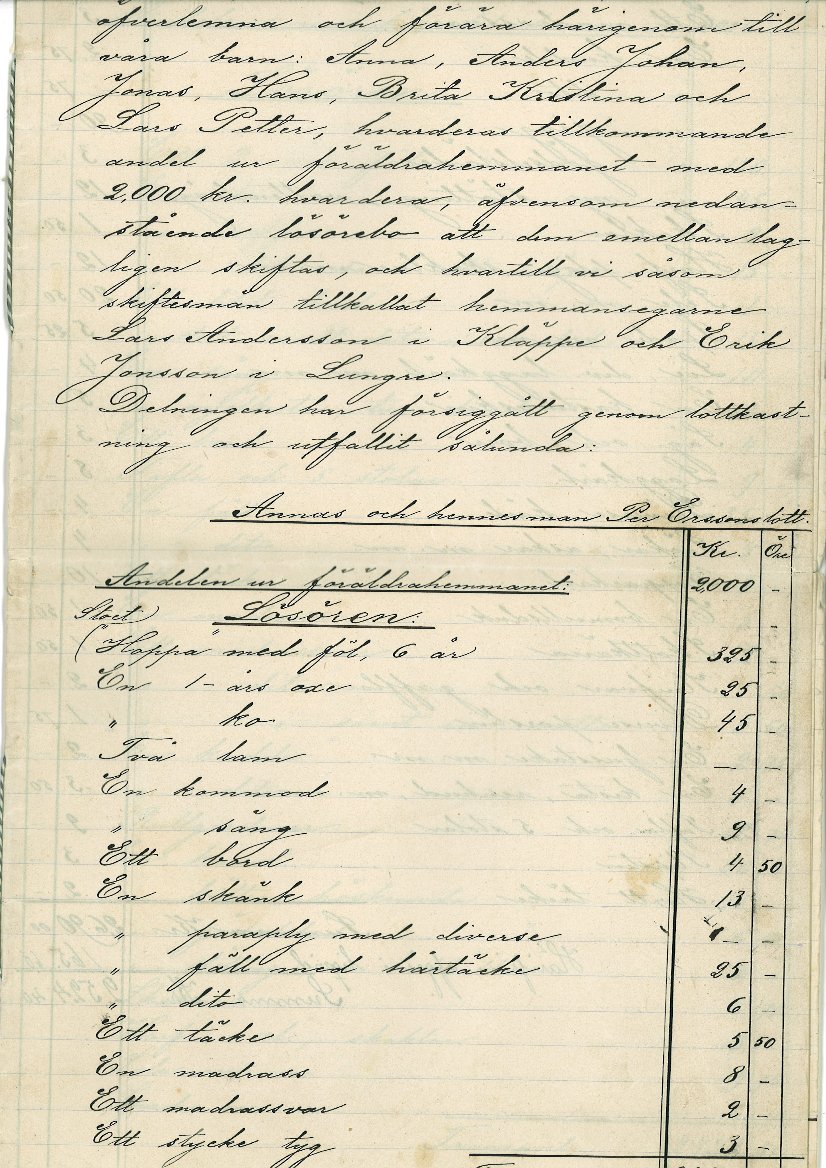 öfverlemna och förära härigenom till
våra barn: Anna, Anders Johan,
Jonas, Hans, Brita Kristina och
Lars Petter, hvarderas tillkommande
andel ur föräldrahemmanet med
2,000 kr. hvardera, äfvensom nedan-
stående lösörebo att dem emellan lag-
ligen skiftas, och hvartill vi såsom
skiftesmän tillkallat hemmansegarne
Lars Andersson i Kläppe och Erik
Jonsson i Lungre.
Delningen har försiggått genom lottkast-
ning och utfallit sålunda:
Annas och hennes man Per Erssons lott.
Kr. Öre
Andelen ur föräldrahemmanet: 2,000 -
Lösören: -
(Stoet) "Hoppa" med föl, 6 år 325 -
En 1-års oxe 25 -
" ko 45 -
Två lam — —
En kommod 4 -
" säng 9 -
Ett bord 4 50
En skänk 13 -
" paraply med diverse 1 - -
" fäll med hårtäcke 25 -
" dito 6 -
Ett täcke 5 50
En madrass 8 -
Ett madrassvar 2 -
Ett stycke tyg 3 -